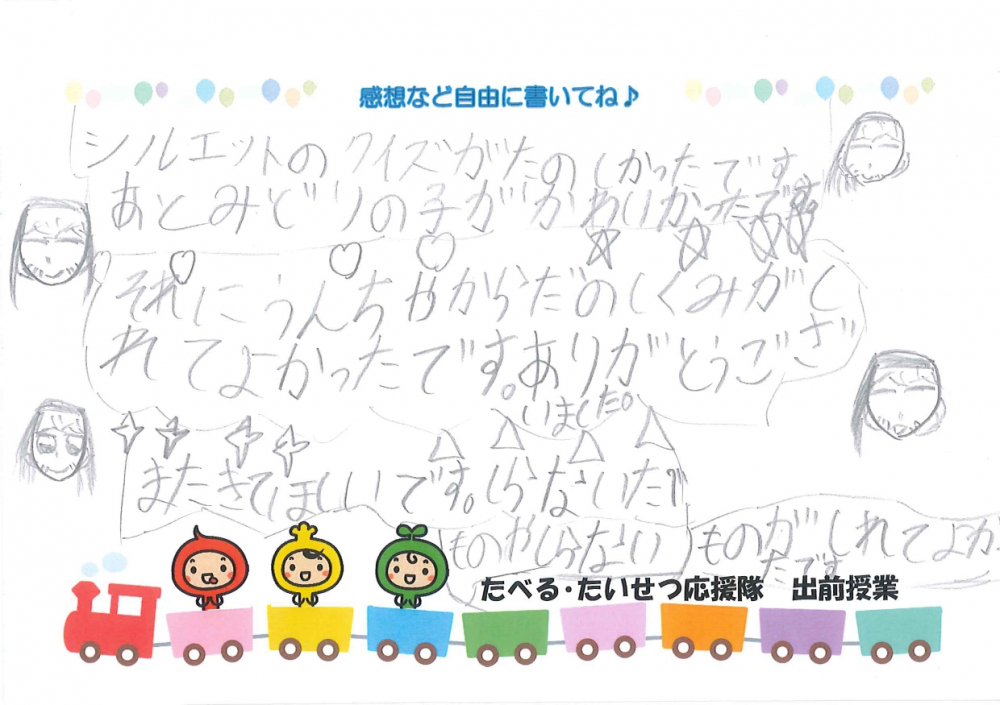 感想など自由に書いてね♪
シルエットのクイズがたのしかったです
あとみどりの子がかわいかったです
それにうんちやからだのしくみがし
れてよかったです。ありがとうござ
いました。
またきてほしいです。しらないたべ
ものやしらない
ものがしれてよか
たです
たべる・たいせつ応援隊 出前授業